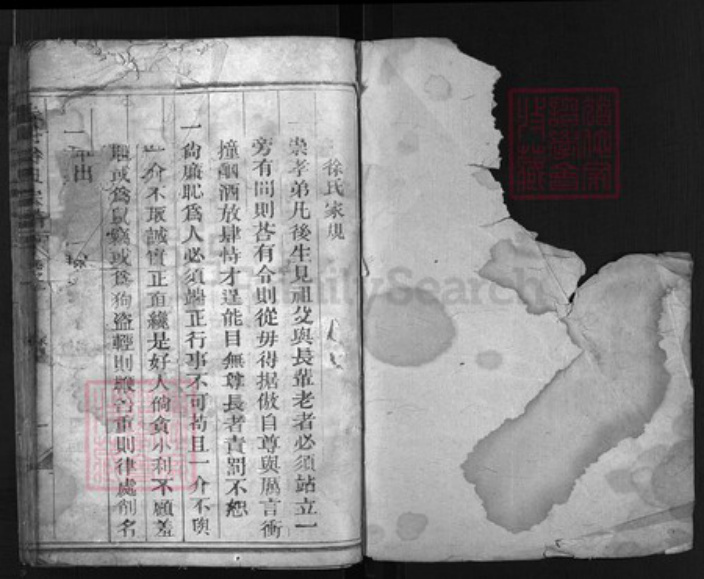 徐氏家規
一崇孝弟凡後生見祖父與長輩老者必須站立一
旁有問則答有令則從毋得据傲自尊與厲言衝
撞酗酒放肆恃才逞能目無尊長者責罰不恕
一尚廉恥為人必須端正行事不可苟且一介不與
一介不取誠實正直纔是好人倘貪小利不顧羞
恥或為鼠竊或為狗盜輕則懲責重則律處削名
一
出
FamilySearch